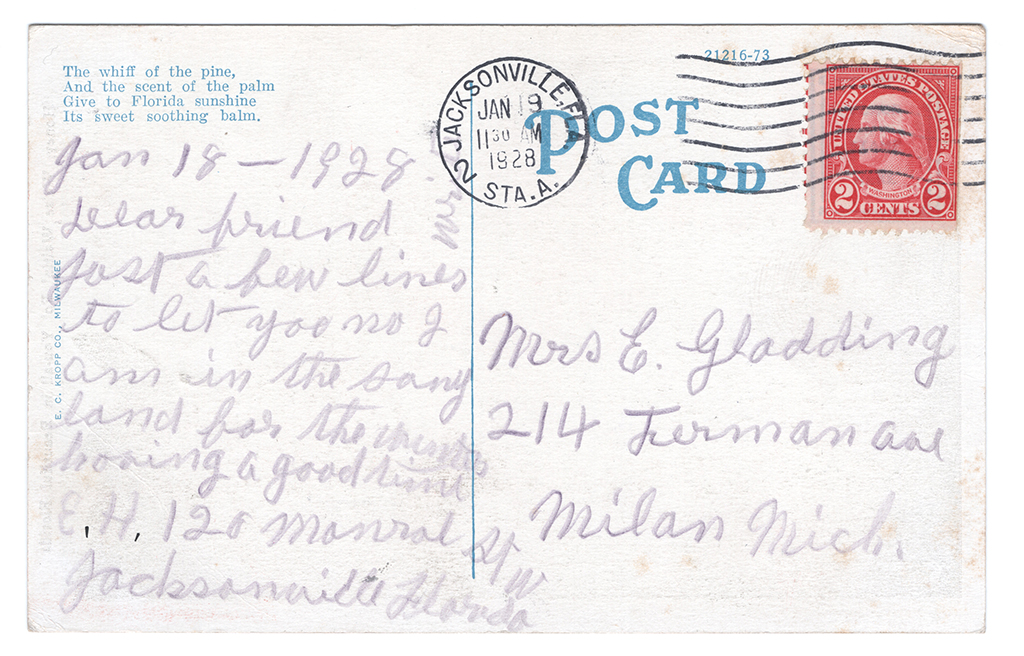 The whiff of the pine,
And the scent of the palm
Give to Florida sunshine
Its sweet soothing balm.
Jan 18 - 1928
Dear friend
Just a few lines
to let yoo no I
am in the sany
land for the
having a good time
E. H. 120 Monroe St W
Jacksonville Florida
E. C. KROPP CO., MILWAUKEE
21216-73
POST
CARD
JACKSONVILLE, FLA
JAN 19
11 30 AM
1928
STA. A.
2
UNITED STATES POSTAGE
WASHINGTON
2 CENTS 2
Mrs E. Gladding
214 Ferman ave
Milan Mich.